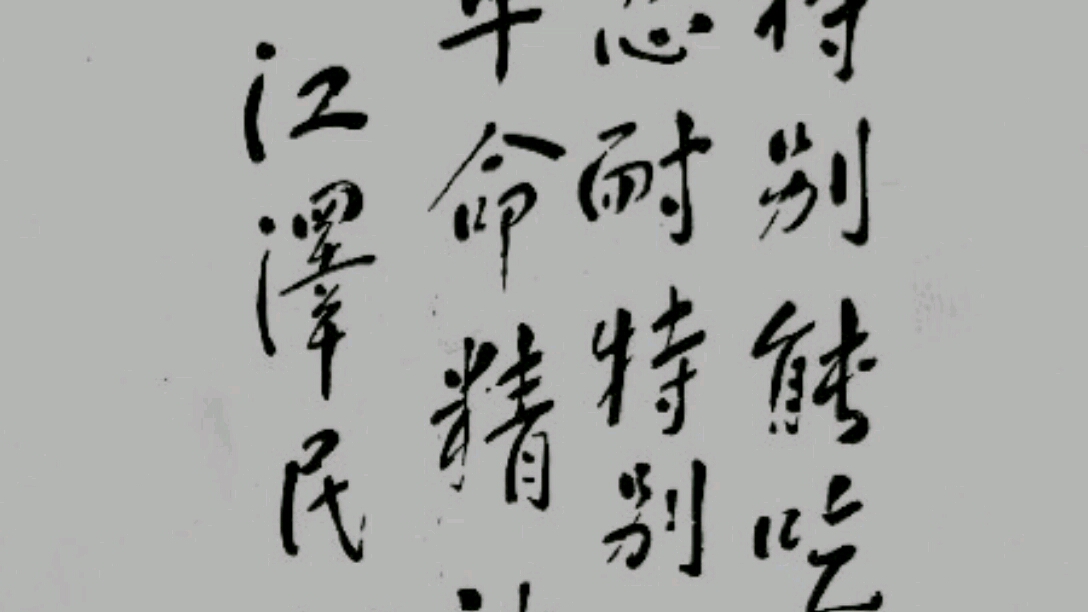 特别能吃
忍耐特别
革命精神
江泽民